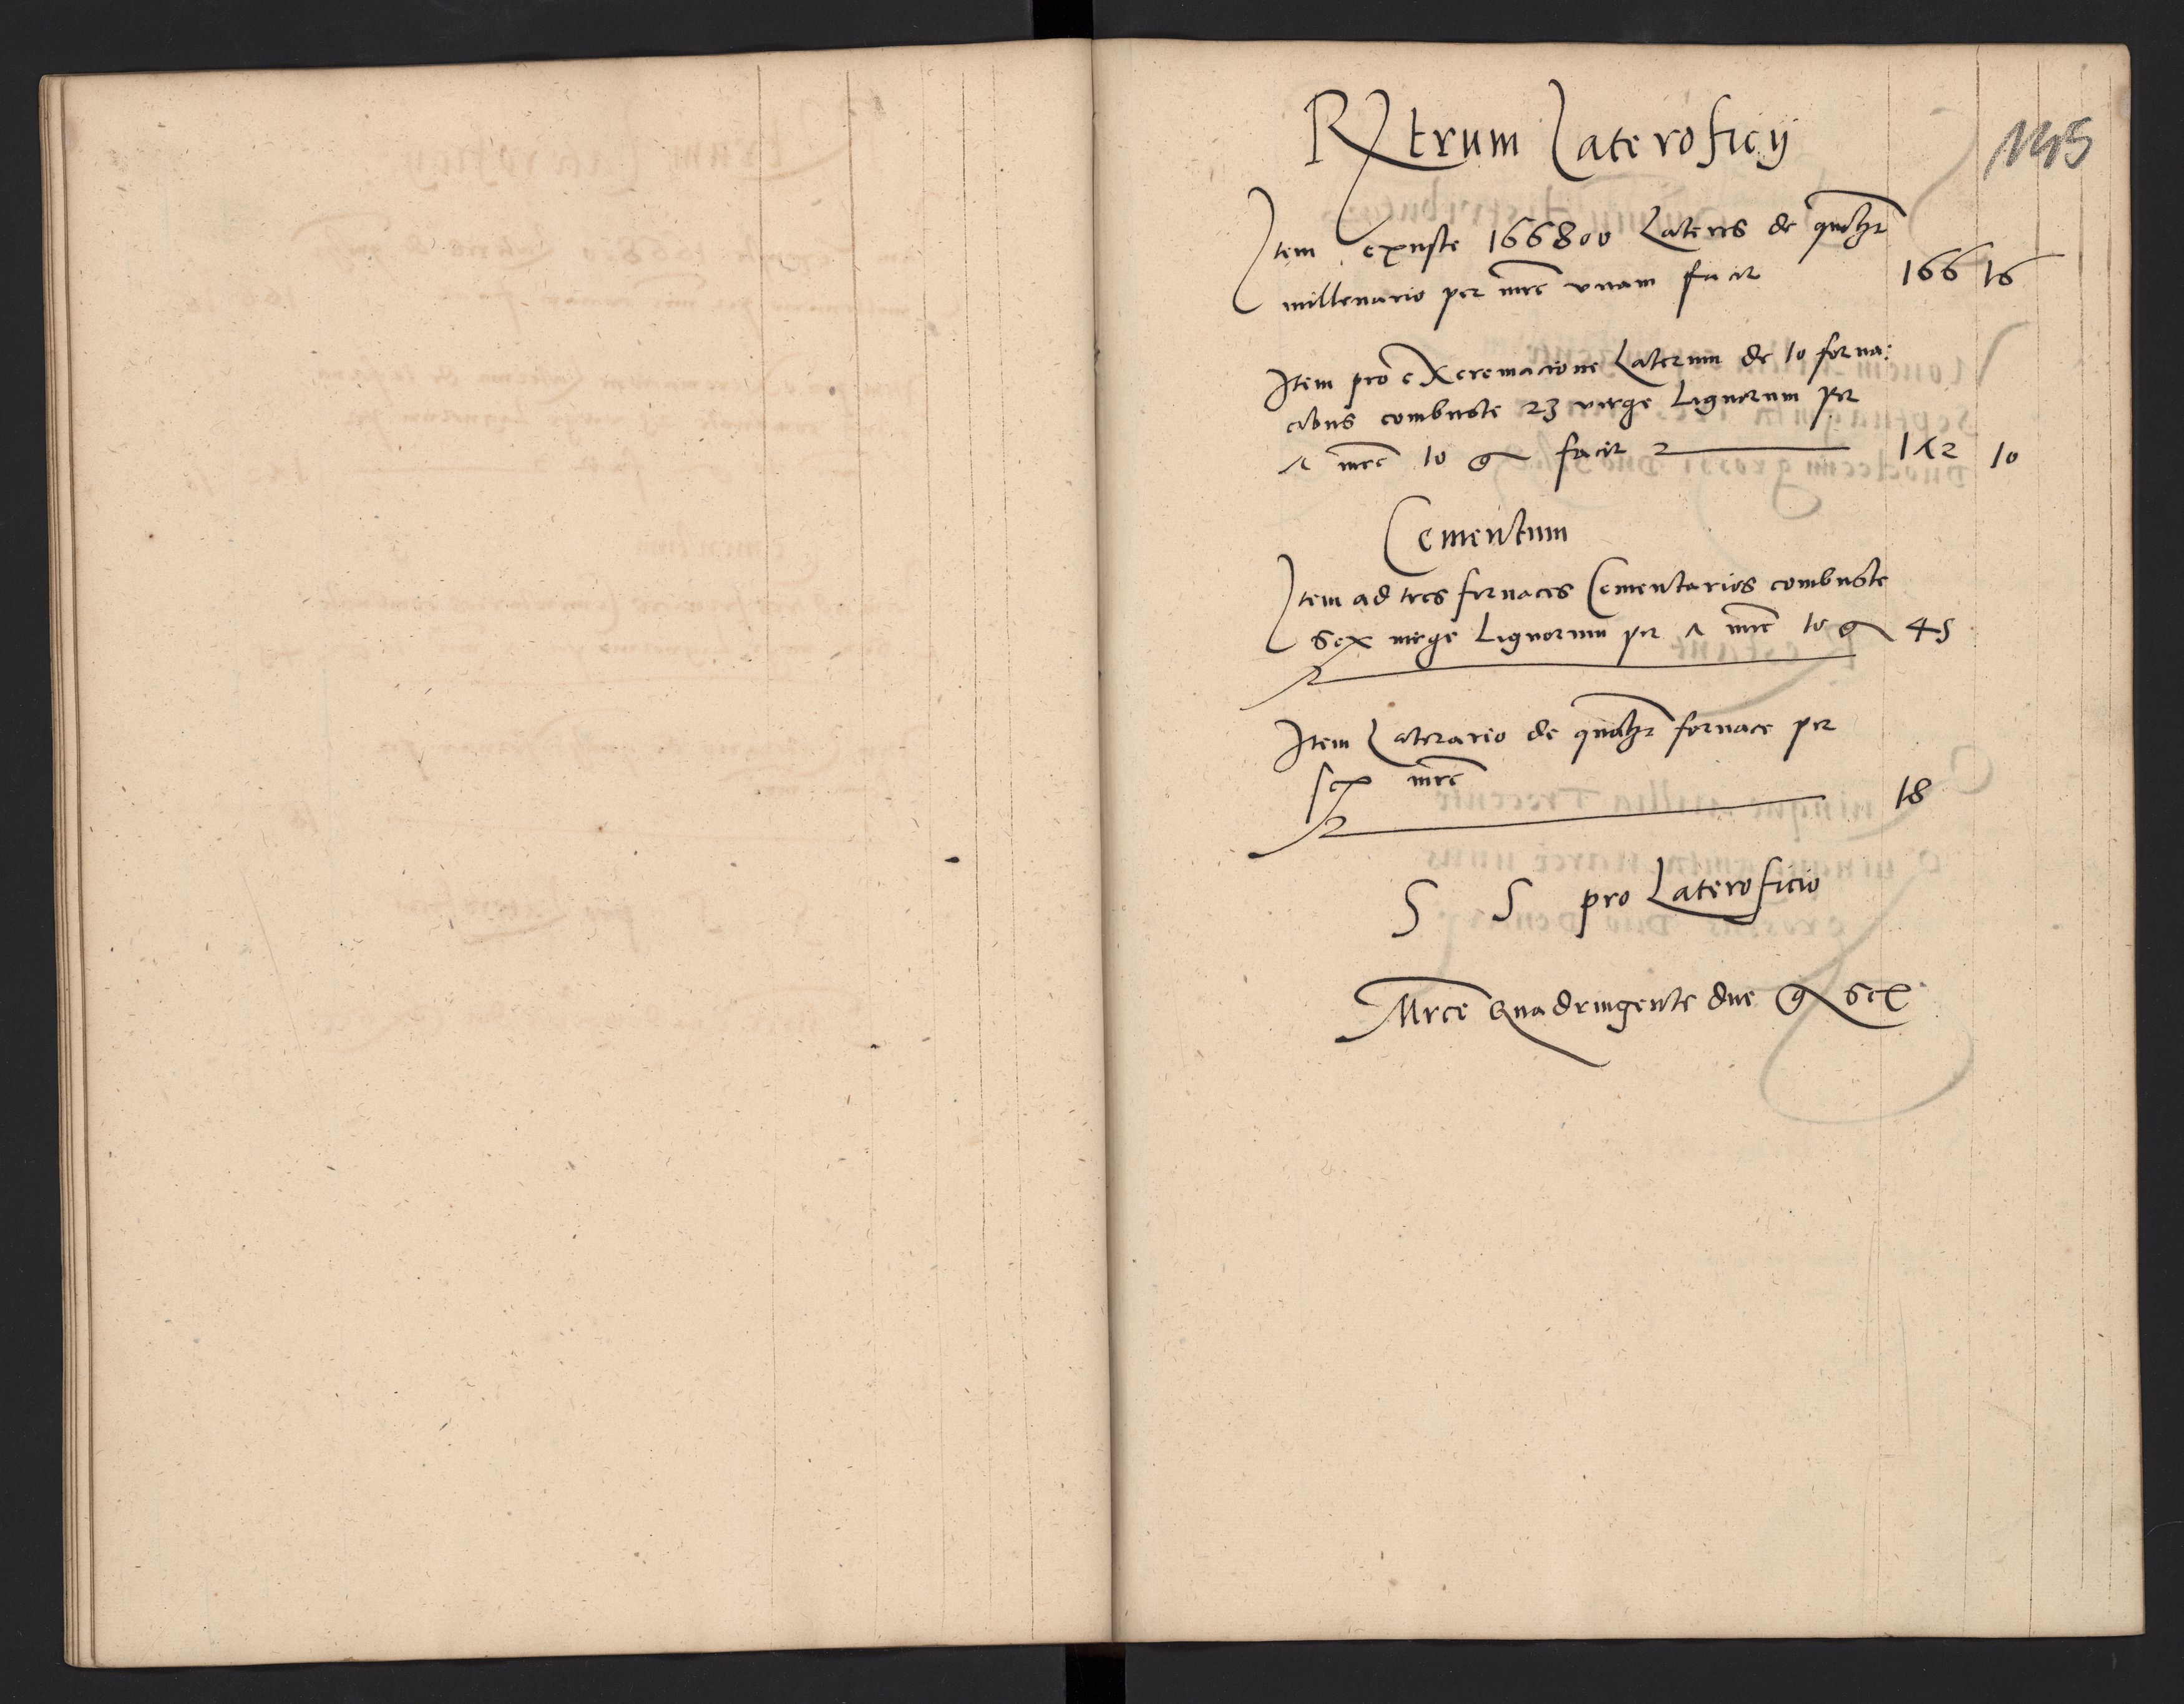 145
Rttrum Lateroficij
Item exuste 166800 Lateris de qualzr
millenario per mrc vnam facit 166 16
Item pro excremacione Laterum de 10 forna:
cibus combuste 23 virge Lignorum per
mrc 10 facit 172 10
Cementum
Item ad tres fornaces Cementarios combuste
Sex virge Lignorum per mrc 10 45
Item Laterario de qualzr fornace per
sex mrc 18
S S pro Lateroficio
Mrce Quadringente due Sex